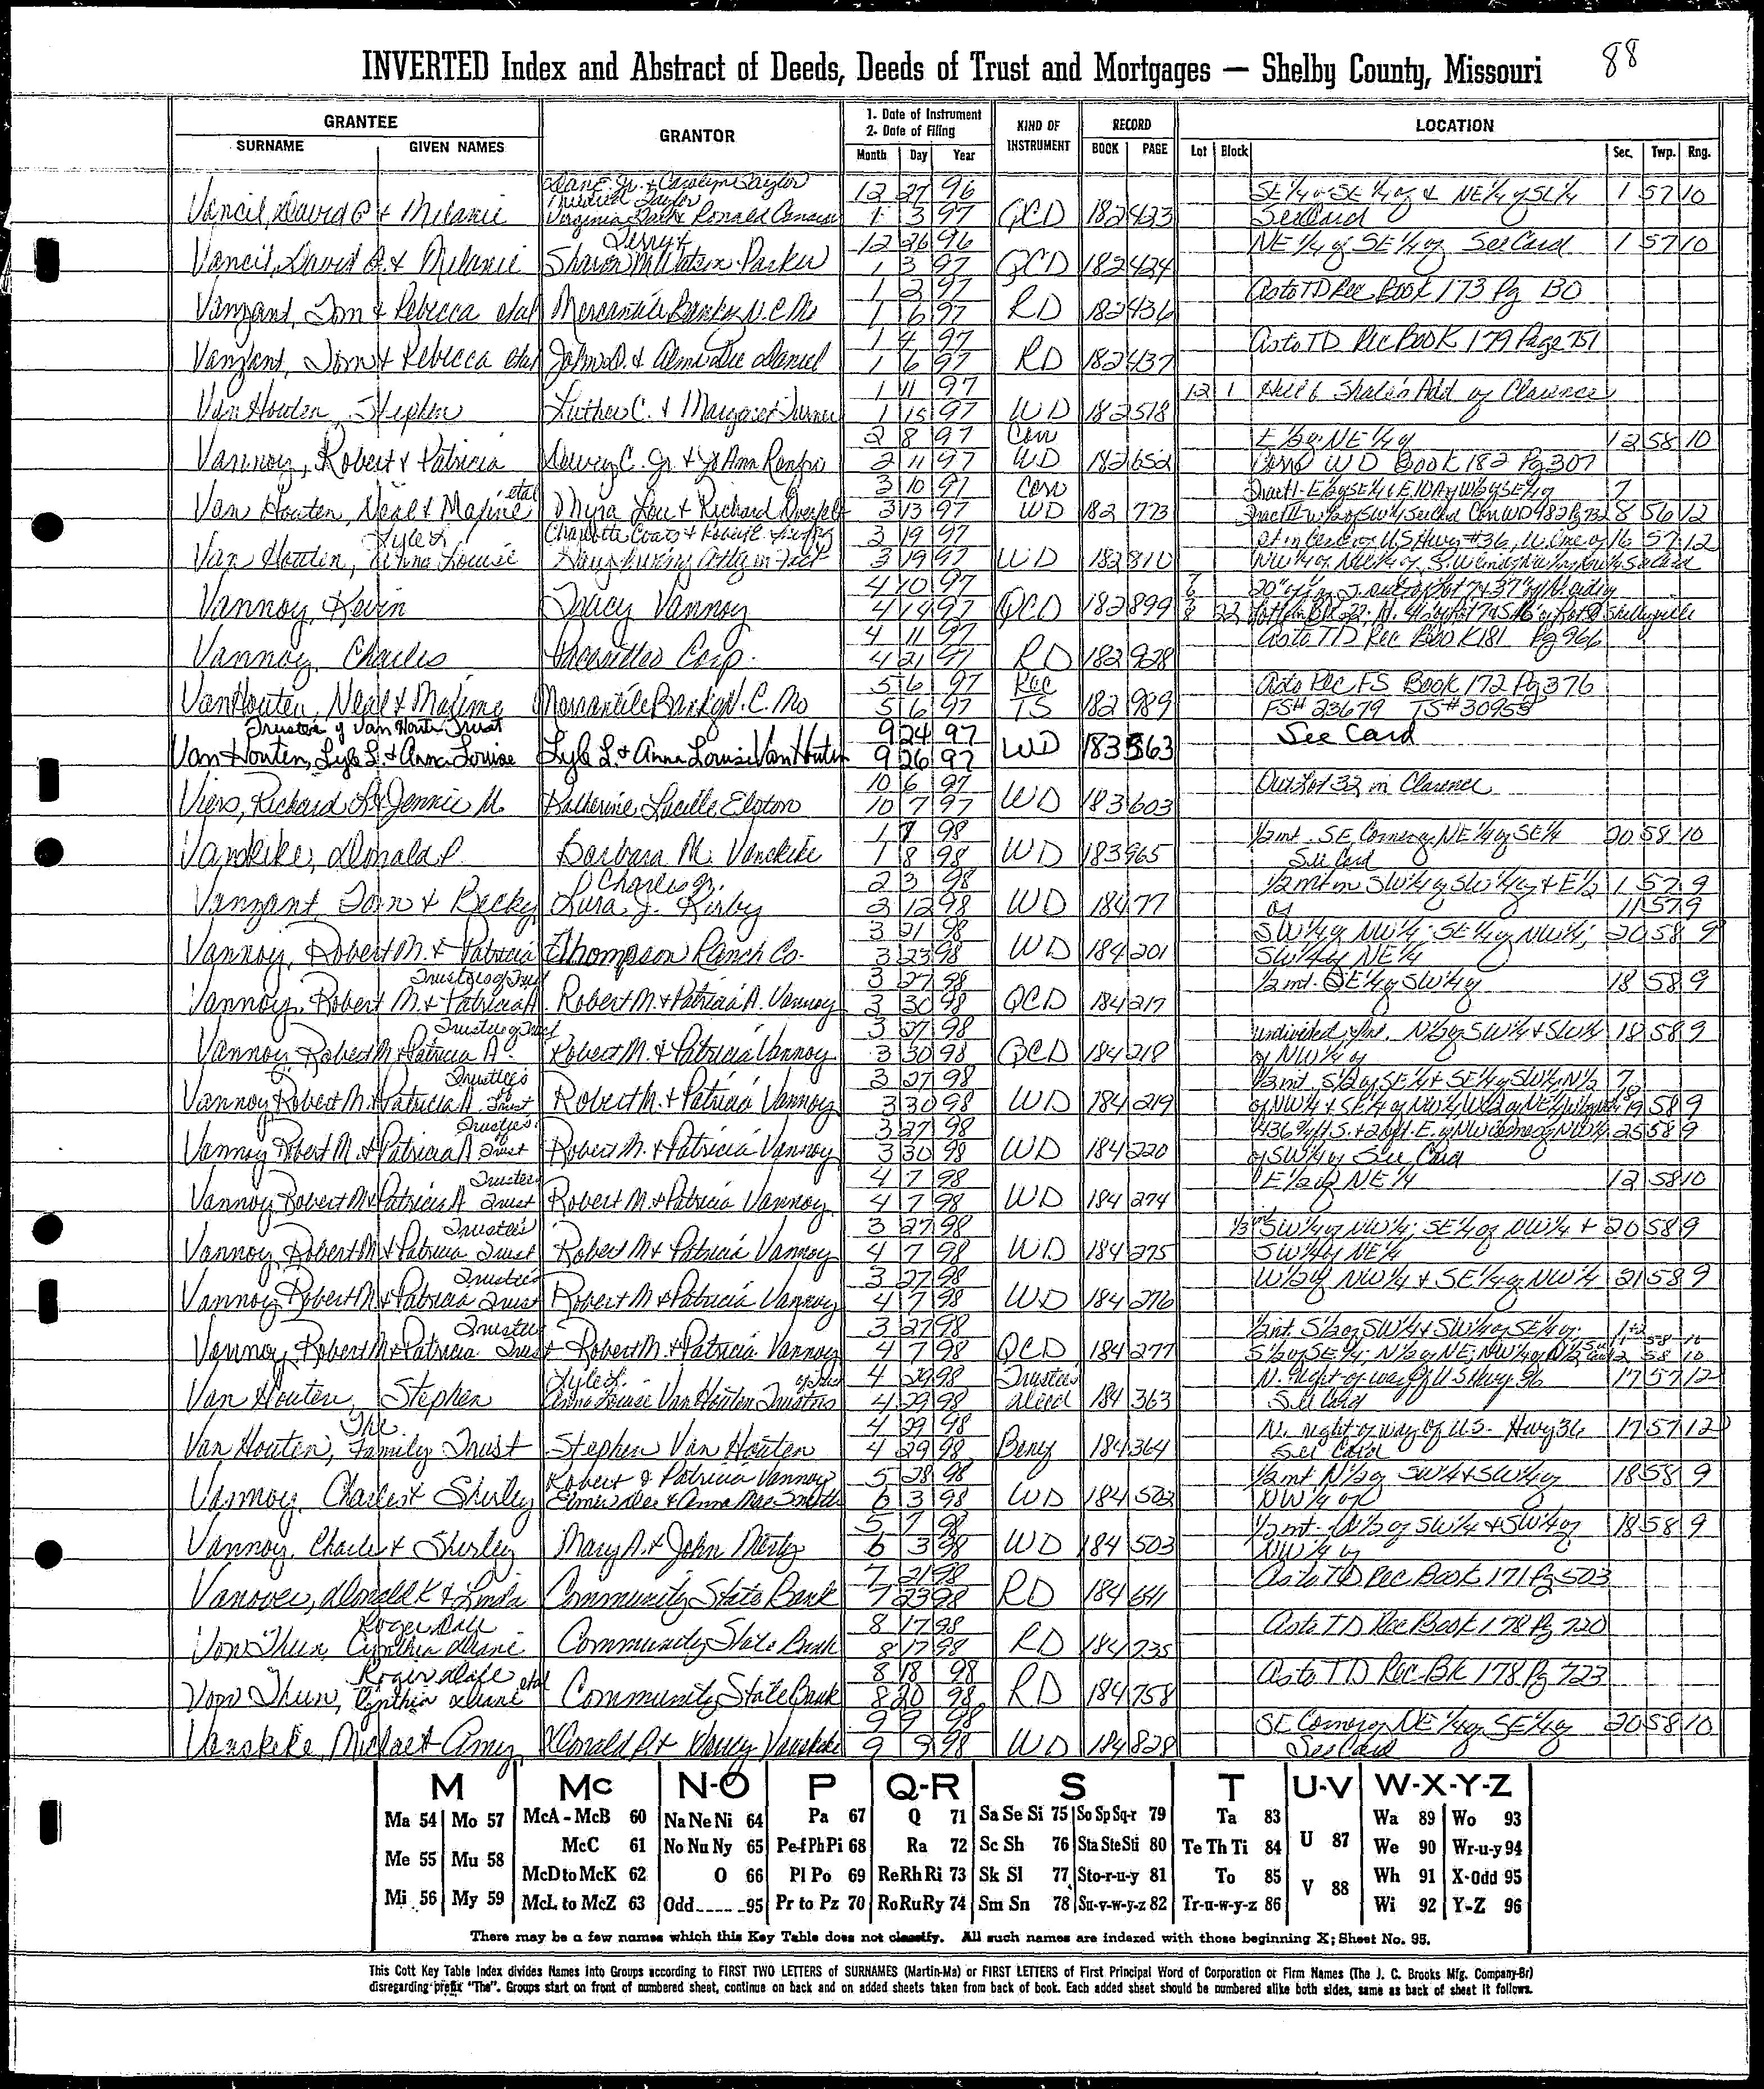 88
INVERTED Index and Abstract of Deeds, Deeds of Trust and Mortgages — Shelby County, Missouri
GRANTEE
SURNAME GIVEN NAMES
GRANTOR
1. Date of Instrument
2. Date of Filing
Month Day Year
KIND OF INSTRUMENT
RECORD
BOOK PAGE
LOCATION
Lot Block Sec. Twp. Rng.
12 27 96 SE 1/4 of SE 1/4 of & NE 1/4 of SE 1/4 1 57 10
Vancil, David & Melanie 1 3 97 QCD 182 423 See Card
12 26 96 NE 1/4 of SE 1/4 of See Card 1 57 10
Vancil, David & Melanie Sharon Parker 1 3 97 QCD 182 424
1 2 97 as to TD Rec Book 173 Pg 130
Vanzant, Tom & Rebecca etal Mercantile Bank of N.C. Mo 1 6 97 RD 182 436
1 4 97 as to TD Rec Book 179 Page 751
Vanzant, Tom & Rebecca etal John D. & Alma Dee Daniel 1 6 97 RD 182 437
1 11 97 12 1 Add of Clarence
Van Houten, Stephen Luther C. & Margaret Turner 1 15 97 WD 182 518
2 8 97 Corr E 1/2 of NE 1/4 of 12 58 10
Vannoy, Robert & Patricia Dewey C. Jr. & Jo Ann 2 11 97 WD 182 652 WD Book 182 Pg 307
etal 3 10 97 Corr 7
Van Houten, Neal & Maxine Myra Lou & Richard 3 13 97 WD 182 773 8 56 12
Lyle L 3 19 97 US Hwy #36, 16 57 12
Van Houten, Anna Louise 3 19 97 WD 182 810
4 10 97
Vannoy, Kevin Tracy Vannoy 4 14 97 QCD 182 899 Shelbyville
4 11 97 as to TD Rec Book 181 Pg 966
Vannoy, Charles Corp. 4 21 97 RD 182 928
5 6 97 Rec as to Rec FS Book 172 Pg 376
Van Houten, Neal & Maxine Mercantile Bank of N.C. Mo 5 6 97 TS 182 989 FS# 23679 TS# 30955
Trustees of Van Houten Trust 9 24 97 See Card
Van Houten, Lyle L. & Anna Louise Lyle L. & Anna Louise Van Houten 9 26 97 WD 183 563
10 6 97 Out Lot 32 in Clarence
Viers, Richard L & Jennie M. Katherine Lucille Elston 10 7 97 WD 183 603
1 7 98 1/2 int. SE Corner of NE 1/4 of SE 1/4 20 58 10
Vanskike, Donald P. Barbara M. Vanskike 1 8 98 WD 183 965 See Card
Charles Jr. 2 3 98 1/2 int in SW 1/4 of SW 1/4 of & E 1/2 1 57 9
Vanzant Tom & Becky Lura J. Kirby 3 12 98 WD 184 77 of 11 57 9
3 21 98 SW 1/4 of NW 1/4; SE 1/4 of NW 1/4; 20 58 9
Vannoy, Robert M. & Patricia Thompson Ranch Co. 3 23 98 WD 184 201 SW 1/4 of NE 1/4
Trustees of Trust 3 27 98 1/2 int. SE 1/4 of SW 1/4 of 18 58 9
Vannoy, Robert M. & Patricia A Robert M. & Patricia A. Vannoy 3 30 98 QCD 184 217
Trustees of Trust 3 27 98 undivided int. N 1/2 of SW 1/4 & SW 1/4 18 58 9
Vannoy Robert M & Patricia A. Robert M. & Patricia Vannoy 3 30 98 QCD 184 218 of NW 1/4 of
Trustees 3 27 98 1/2 int. S 1/2 of SE 1/4 & SE 1/4 of SW 1/4 N 1/2 7
Vannoy Robert M. & Patricia A. Trust Robert M. & Patricia Vannoy 3 30 98 WD 184 219 19 58 9
Trustees 3 27 98 25 58 9
Vannoy Robert M. & Patricia A Trust Robert M. & Patricia Vannoy 3 30 98 WD 184 220 of SW 1/4 of See Card
Trustees 4 7 98 E 1/2 of NE 1/4 12 58 10
Vannoy Robert M & Patricia A Trust Robert M. & Patricia Vannoy 4 7 98 WD 184 274
Trustees 3 27 98 SW 1/4 of NW 1/4; SE 1/4 of NW 1/4 & 20 58 9
Vannoy Robert M & Patricia Trust Robert M & Patricia Vannoy 4 7 98 WD 184 275 SW 1/4 of NE 1/4
Trustees 3 27 98 W 1/2 of NW 1/4 & SE 1/4 of NW 1/4 21 58 9
Vannoy Robert M & Patricia Trust Robert M & Patricia Vannoy 4 7 98 WD 184 276
Trustee 3 27 98 1/2 int. S 1/2 of SW 1/4 & SW 1/4 of SE 1/4 of;
Vannoy, Robert M & Patricia Trust Robert M. & Patricia Vannoy 4 7 98 QCD 184 277
Lyle L. 4 29 98 Trustees N. Right of way of US Hwy 36 17 57 12
Van Houten, Stephen Anna Louise Van Houten Trustees 4 29 98 deed 184 363 See Card
The 4 29 98 N. right of way of U.S. Hwy 36 17 57 12
Van Houten, Family Trust Stephen Van Houten 4 29 98 Beny 184 364 See Card
Robert & Patricia Vannoy 5 28 98 1/2 int N 1/2 of SW 1/4 & SW 1/4 of 18 58 9
Vannoy, Charles & Shirley Elmer Dee & Anna Mae Smith 6 3 98 WD 184 502 NW 1/4 of
5 7 98 1/2 int. N 1/2 of SW 1/4 & SW 1/4 of 18 58 9
Vannoy, Charles & Shirley Mary A. & John Mertz 6 3 98 WD 184 503 NW 1/4 of
7 21 98 as to TD Rec Book 171 Pg 503
Vanover, Donald K & Linda Community State Bank 7 23 98 RD 184 641
Roger Dale 8 17 98 as to TD Rec Book 178 Pg 720
Von Thun, Cynthia Diane Community State Bank 8 17 98 RD 184 735
Roger Dale etal 8 18 98 as to TD Rec Bk 178 Pg 723
Von Thun, Cynthia Diane Community State Bank 8 20 98 RD 184 758
9 9 98 SE Corner of NE 1/4 of SE 1/4 of 20 58 10
Vanskike, Michael & Amy Donald P. & Nancy Vanskike 9 9 98 WD 184 828 See Card
M Mc N-O P Q-R S T U-V W-X-Y-Z
Ma 54 Mo 57 McA - McB 60 Na Ne Ni 64 Pa 67 Q 71 Sa Se Si 75 So Sp Sq-r 79 Ta 83 Wa 89 Wo 93
McC 61 No Nu Ny 65 Pe-f Ph Pi 68 Ra 72 Sc Sh 76 Sta Ste Sti 80 Te Th Ti 84 U 87 We 90 Wr-u-y 94
Me 55 Mu 58 McD to McK 62 O 66 Pl Po 69 Re Rh Ri 73 Sk Sl 77 Sto-r-u-y 81 To 85 V 88 Wh 91 X-Odd 95
Mi 56 My 59 McL to McZ 63 Odd 95 Pr to Pz 70 Ro Ru Ry 74 Sm Sn 78 Su-v-w-y-z 82 Tr-u-w-y-z 86 Wi 92 Y-Z 96
There may be a few names which this Key Table does not classify. All such names are indexed with those beginning X; Sheet No. 95.
This Cott Key Table Index divides Names Into Groups according to FIRST TWO LETTERS of SURNAMES (Martin-Ma) or FIRST LETTERS of First Principal Word of Corporation or Firm Names (The J. C. Brooks Mfg. Company-Br)
disregarding prefix "The". Groups start on front of numbered sheet, continue on back and on added sheets taken from back of book. Each added sheet should be numbered alike both sides, same as back of sheet it follows.